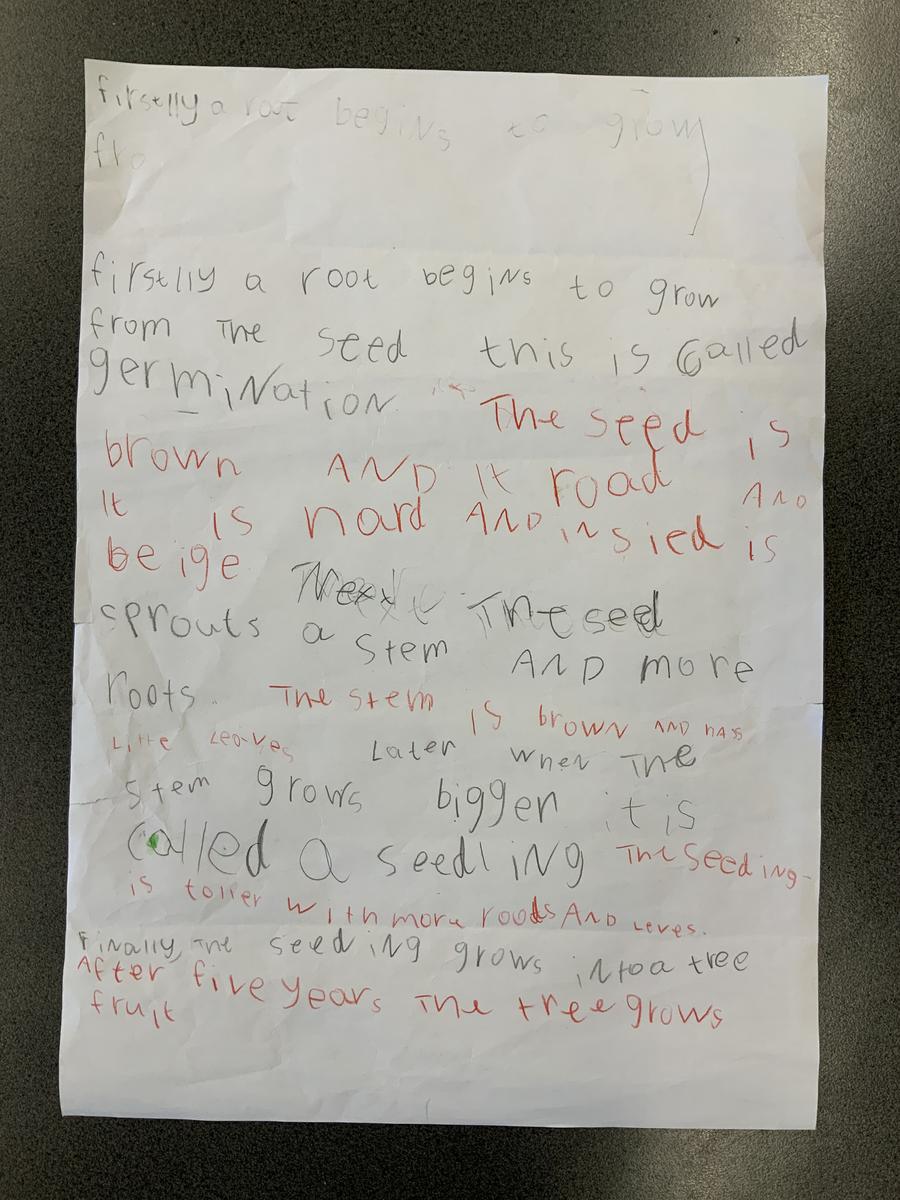 firstlly a root begins to grow
fro
firstlly a root begins to grow
from The seed this is Called
germiNatioN The seed is
brown AND It road AND
It is hard AND insied is
beige Next The seed
sprouts a stem AND more
roots. The stem is brown AND has
Litte Leaves Later when The
stem grows bigger it is
called a seedliNg The seeding
is toller with more roots AND Leves.
Finally, The seediNg grows iNtoa tree
After five years The tree grows
fruit